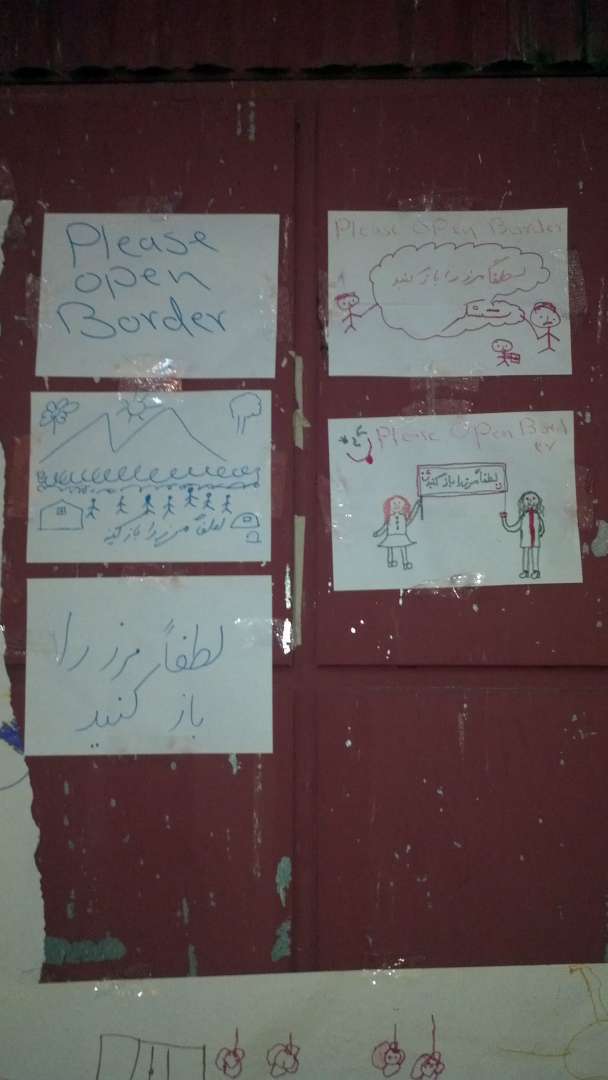 Please
open
Border
لطفاً مرز را باز کنید
لطفاً مرز را
باز کنید
Please Open Border
لطفاً مرز را باز کنید
Please Open Bord
er
لطفاً مرز را باز کنید